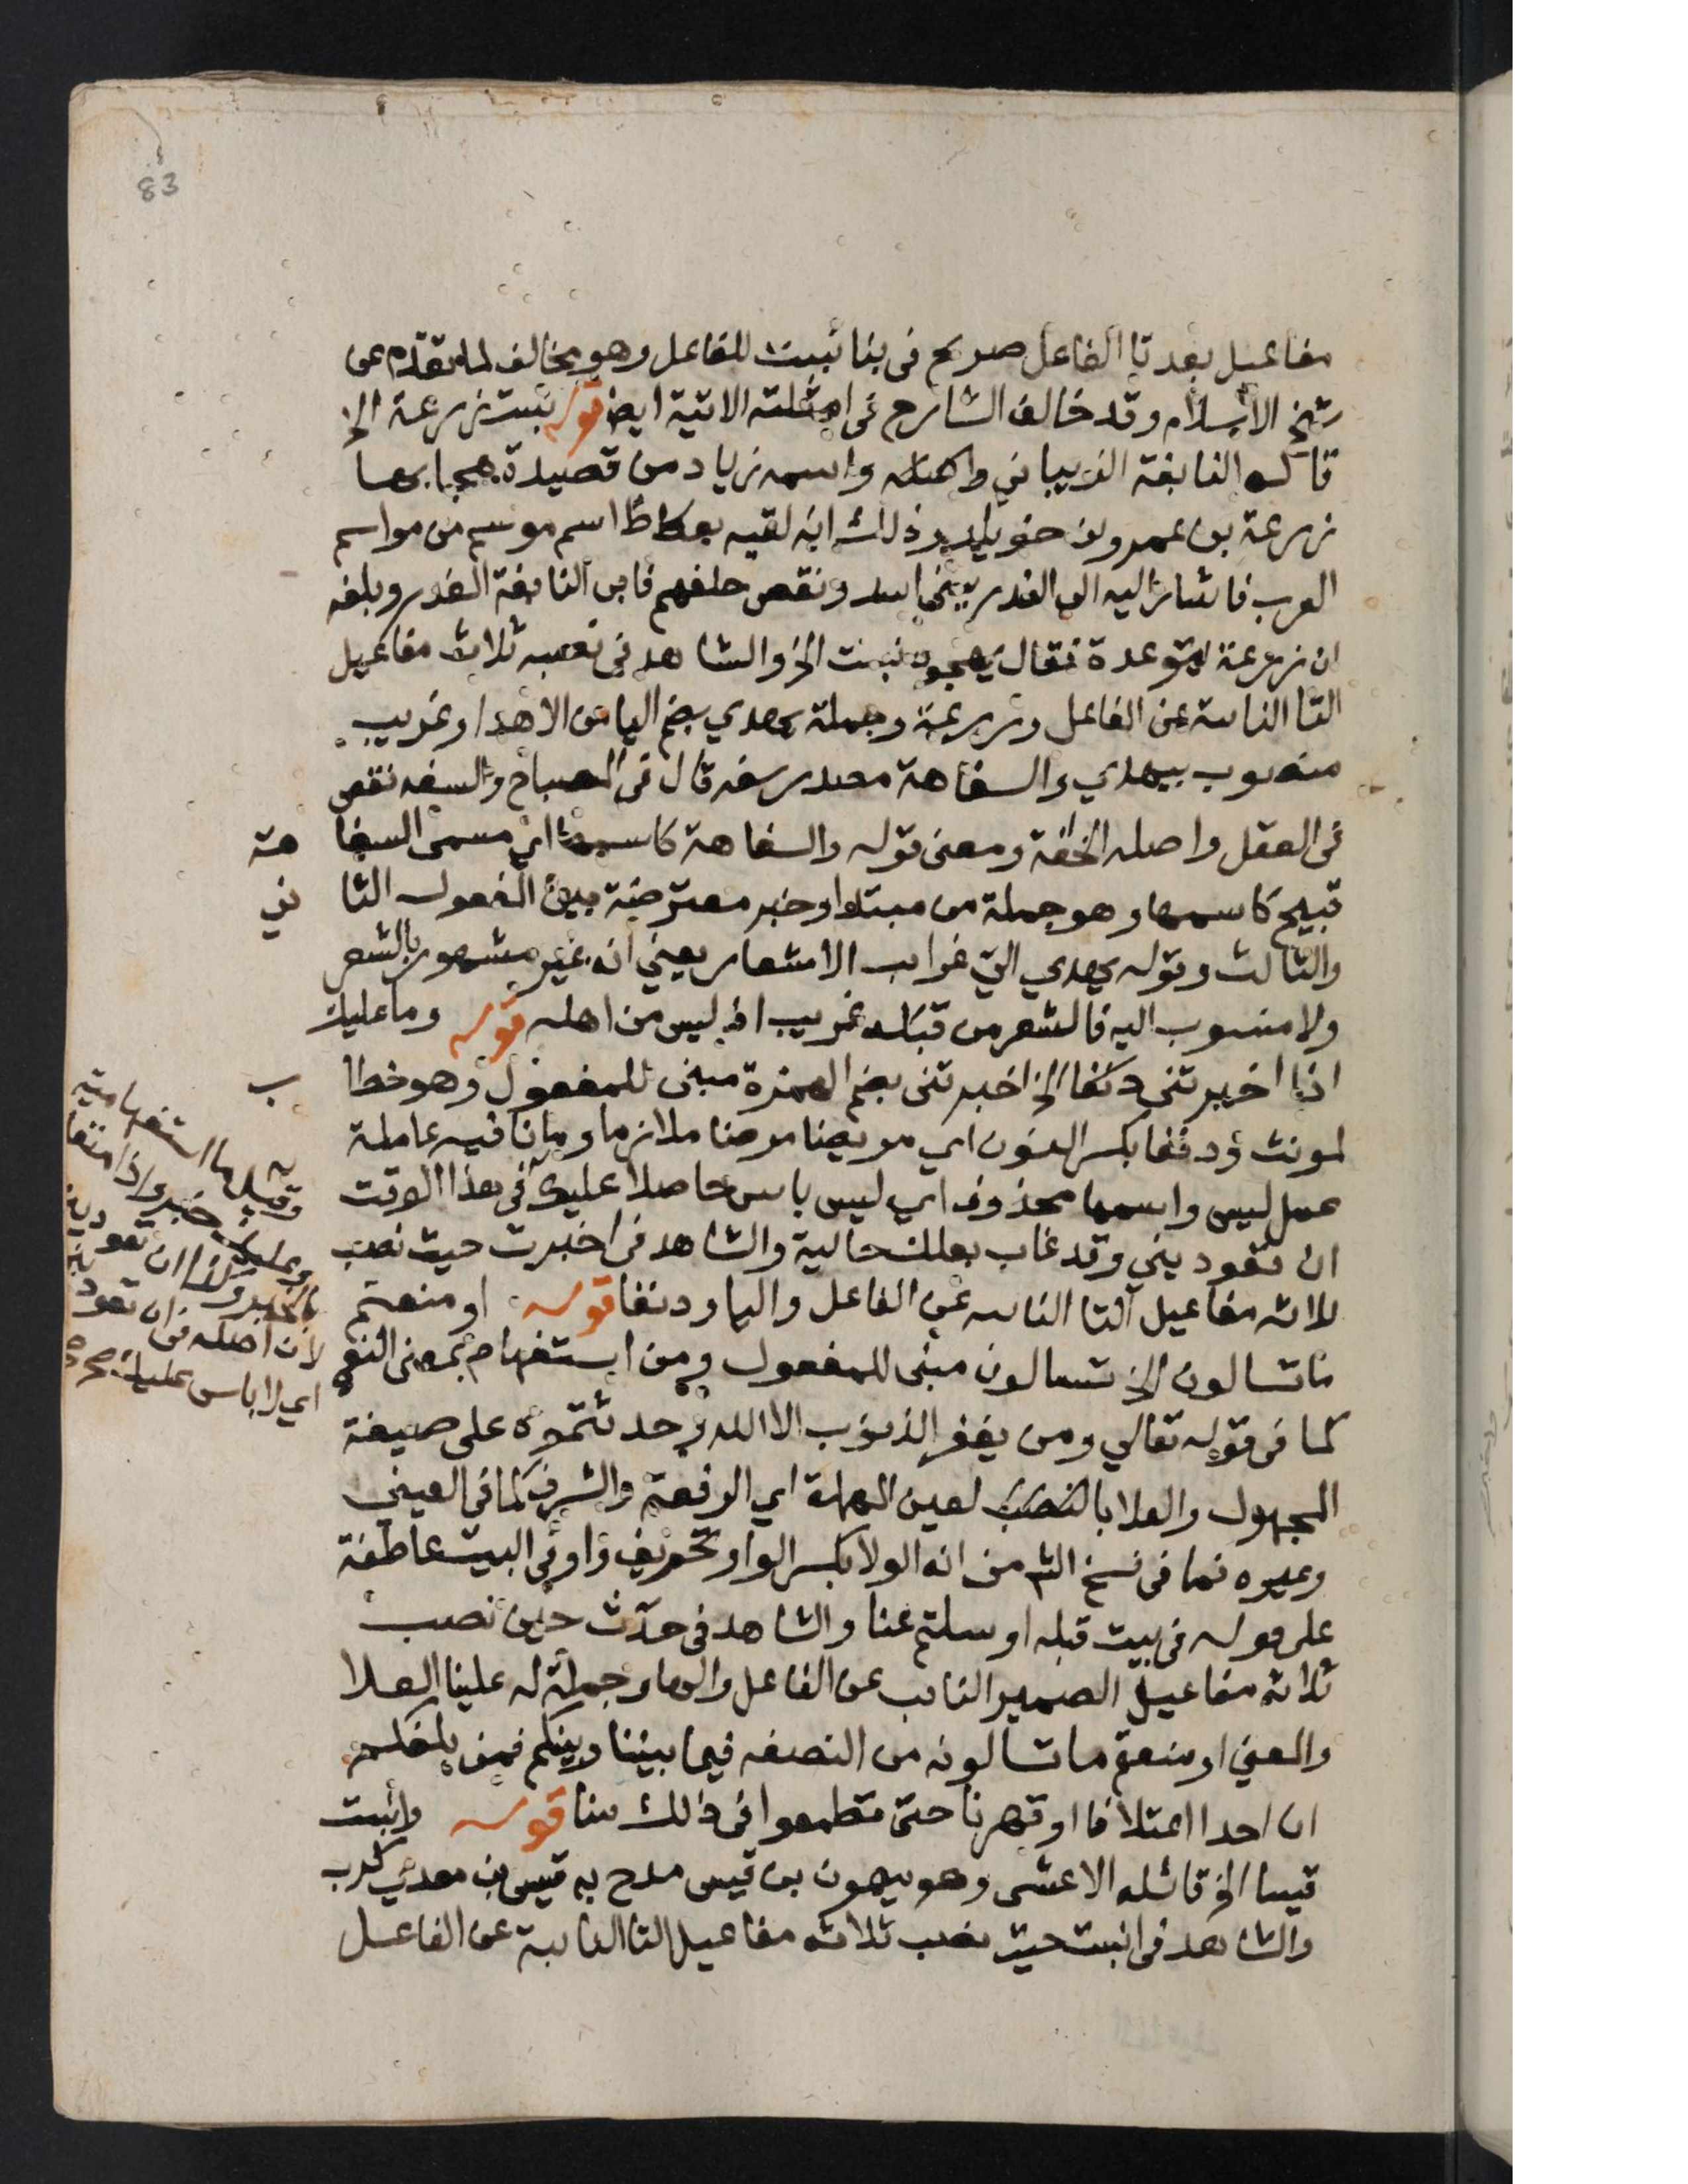 83
مفاعيل بعد تا الفاعل صريح فى بنا نبيت للفاعل وهو مخالف لما تقدم عن
شيخ الاسلام وقد خالف الشارح فى امثلته الاتية ايضا قوله نبيت زرعة الخ
قاله النابغة الذبياني واسمه زياد من قصيدة هجا بها
زرعة بن عمرو بن خويلد وذلك انه لقيه بعكاظ اسم موسم من مواسم
العرب فاشار اليه الى الغدر ببني اسد ونقص حلفهم فابى النابغة الغدر وبلغه
ان زرعة يتوعده فقال يهجوه نبيت الخ والشاهد فى نصبه ثلاث مفاعيل
التا النائبة عن الفاعل وزرعة وجملة يهدي بضم اليا من الاهدا وغريب
منصوب بيهدي والسفاهة مصدر سفه قال فى المصباح والسفه نقص
فى العقل واصله الخفة ومعنى قوله والسفاهة كاسمها اي مسمى السفا هة
قبيح كاسمها وهو جملة من مبتدا وخبر معترضة بين المفعول الثا ني
والثالث وقوله يهدي الي غرايب الاشعار يعني انه غير مشهور بالشعر
ولا منسوب اليه فالشعر من قبله غريب اذ ليس من اهله قوله وما عليك
اذا اخبرتني دنفا الخ اخبرتنى بضم الهمزة مبنى للمفعول وهو خطا ب
لمونث ودنفا بكسر النون اي مريضا مرضا ملازما وما نافيه عاملة
عمل ليس واسمها محذوف اي ليس باس حاصلا عليك فى هذا الوقت
ان تعوديني وقد غاب بعلك حالية والشاهد فى اخبرت حيث نصب
ثلاثه مفاعيل التا النائبه عن الفاعل واليا ودنفا قوله او منعتم
ما تسالون الخ تسالون مبنى للمفعول ومن استفهام بمعنى النفي
كما فى قوله تعالى ومن يغفر الذنوب الا الله وحدثتموه على صيغة
المجهول والعلا بالنصب لعين المهملة اي الرفعة والشرف كما فى العيني
وغيره فما فى نسخ الش من انه الولا بكسر الواو تحريف واو فى البيت عاطفة
على قوله فى بيت قبله او سلتم عنا والشاهد فى حدث حين نصب
ثلاثه مفاعيل الضمير النائب عن الفاعل والها وجملة له علينا العلا
والمعني او منعتم ما تسالونه من النصفه فيما بيننا وبينكم فمن بلغكم
ان احدا اعتلانا او قهرنا حتى تطمعوا فى ذلك منا قوله وانبيت
قيسا الخ قائله الاعشى وهو ميمون بن قيس مدح به قيس بن معدي كرب
والشاهد فى انبيت حيث نصب ثلاثه مفاعيل التا النائبة عن الفاعل
وقيل ما استفهامية
وعليك خبر واذا متعلق
بالخبر وكذا ان تعوديني
لان اصله فى ان تعوديني
اي لا باس عليك صح